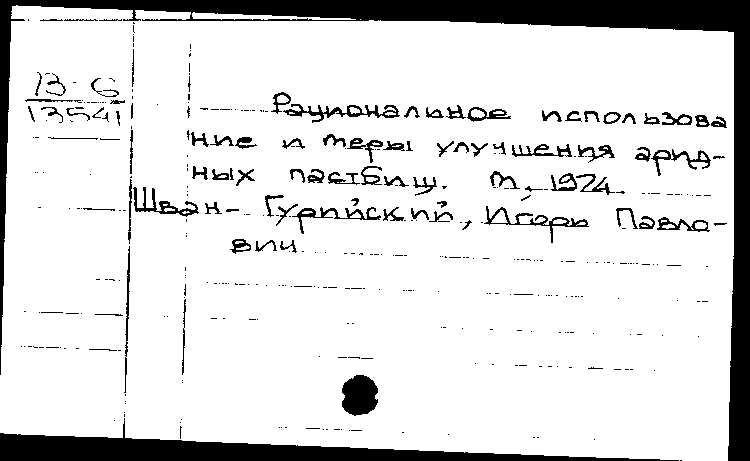 В-6
13541
Рациональное использова
ние и меры улучшения арид-
ных пастбищ. М., 1974.
Шван-Гурийский, Игорь Павло-
вич